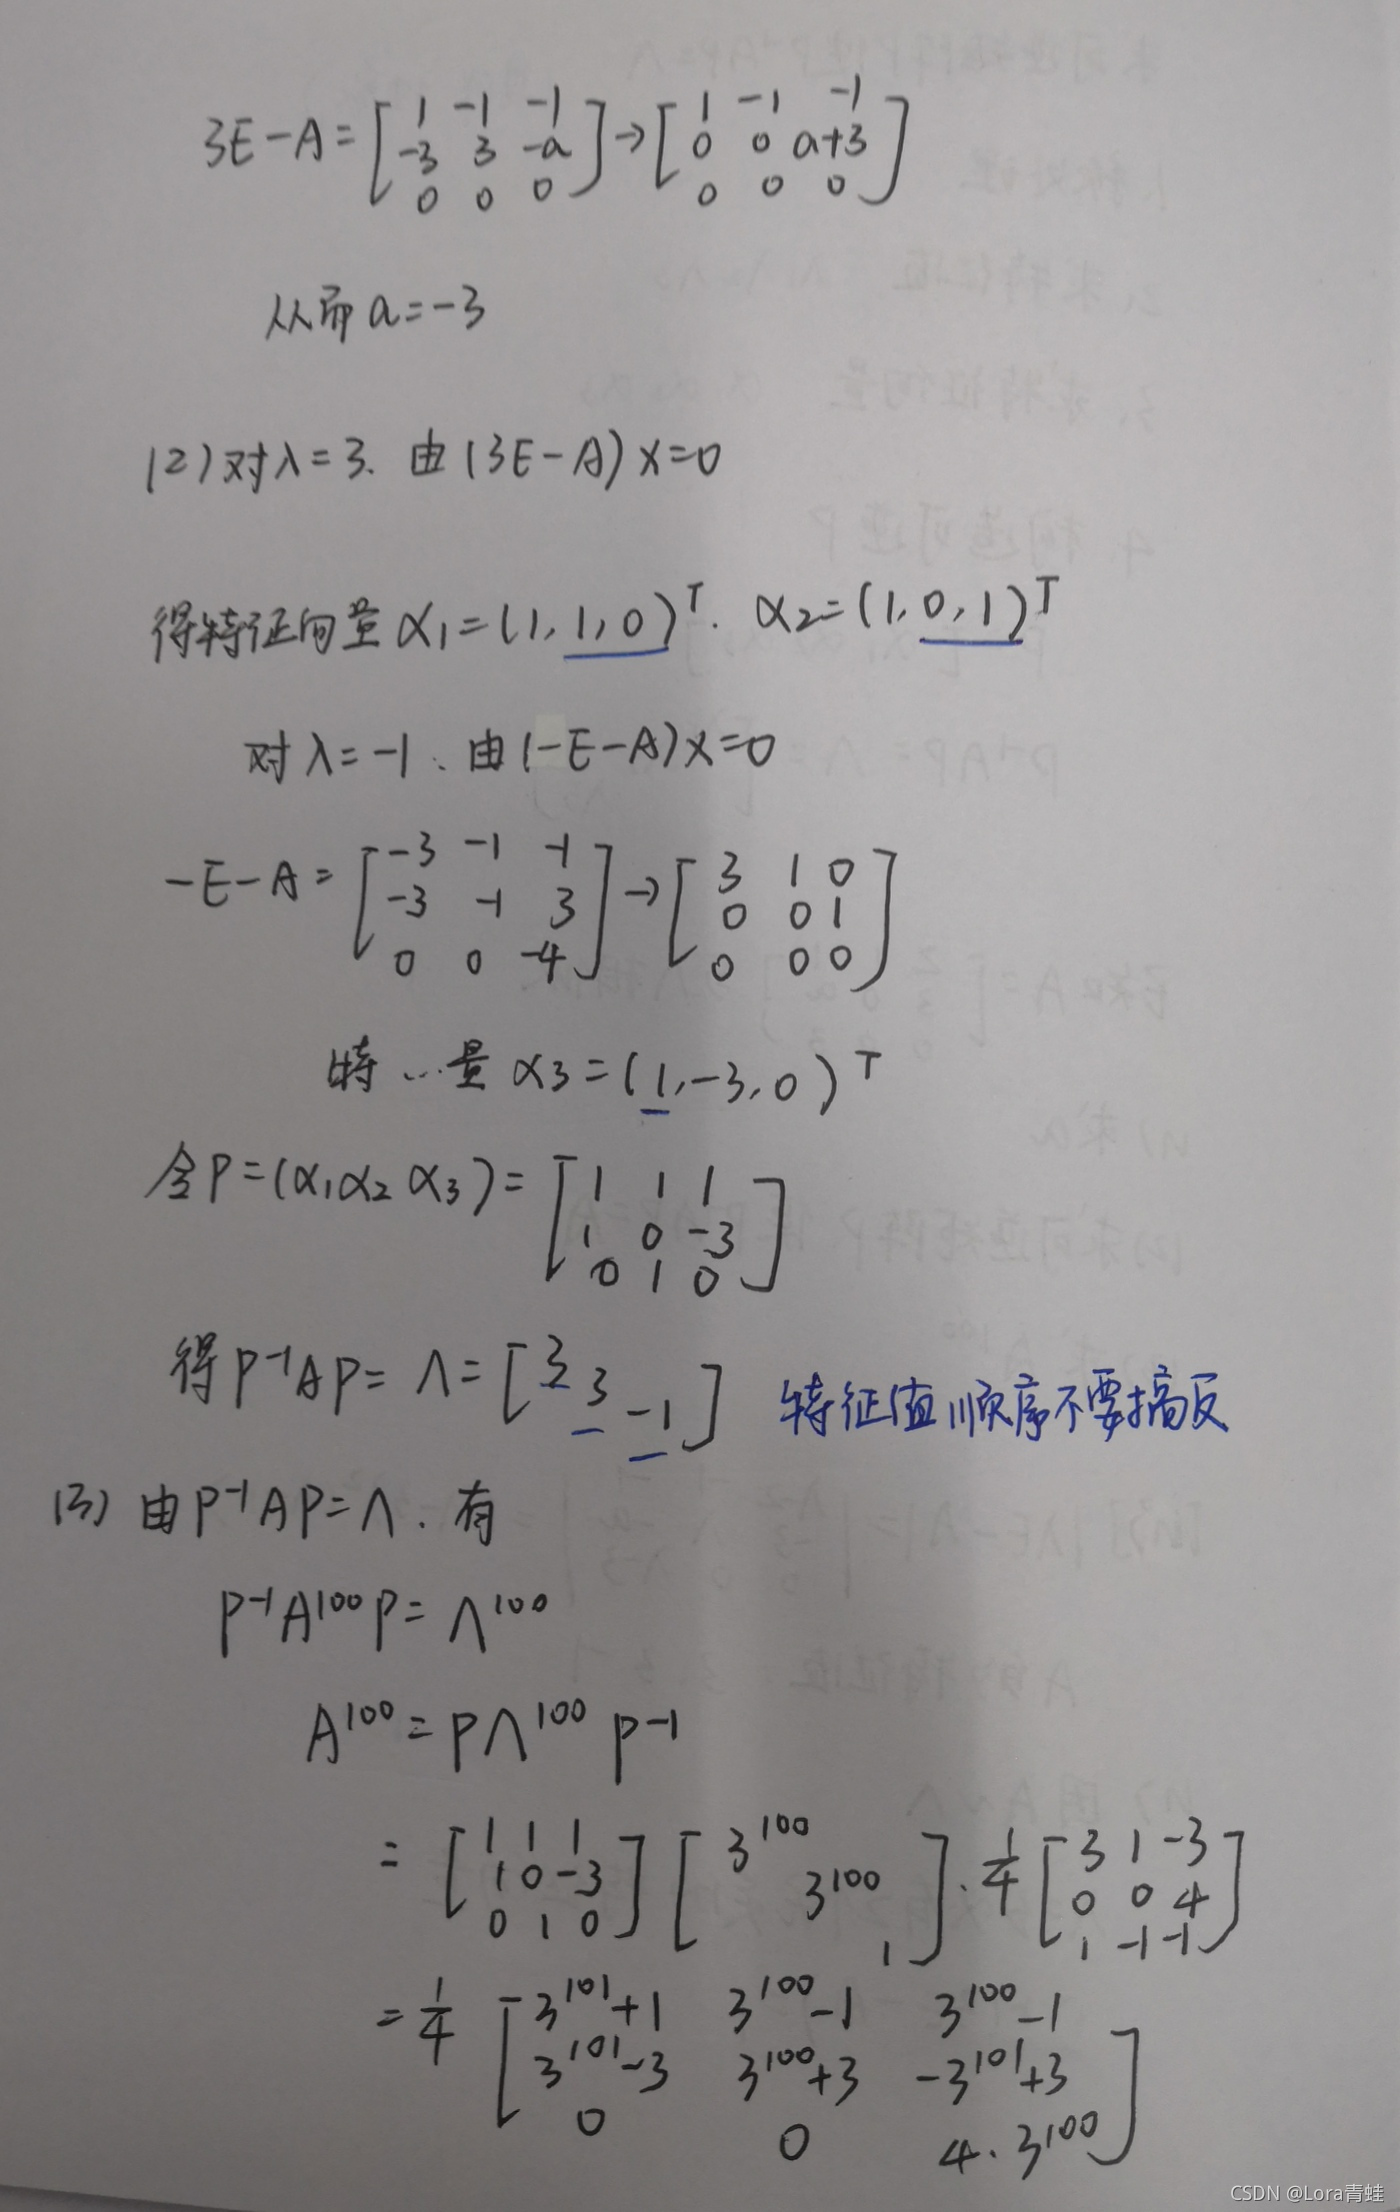 3E-A=[1 -1 -1
-3 3 -a
0 0 0]→[1 -1 -1
0 0 a+3
0 0 0]
从而 a=-3
(2)对λ=3. 由(3E-A)x=0
得特征向量 α₁=(1,1,0)ᵀ. α₂=(1,0,1)ᵀ
对λ=-1. 由(-E-A)x=0
-E-A=[-3 -1 -1
-3 -1 3
0 0 -4]→[3 1 0
0 0 1
0 0 0]
特…量 α₃=(1,-3,0)ᵀ
令P=(α₁α₂α₃)=[1 1 1
1 0 -3
0 1 0]
得P⁻¹AP=Λ=[3 3 -1] 特征值顺序不要搞反
(3)由P⁻¹AP=Λ. 有
P⁻¹A¹⁰⁰P=Λ¹⁰⁰
A¹⁰⁰=PΛ¹⁰⁰P⁻¹
=[1 1 1
1 0 -3
0 1 0][3¹⁰⁰
3¹⁰⁰
1]·1/4[3 1 -3
0 0 4
1 -1 -1]
=1/4[3¹⁰¹+1 3¹⁰⁰-1 3¹⁰⁰-1
3¹⁰¹-3 3¹⁰⁰+3 -3¹⁰¹+3
0 0 4·3¹⁰⁰]
CSDN @Lora青蛙